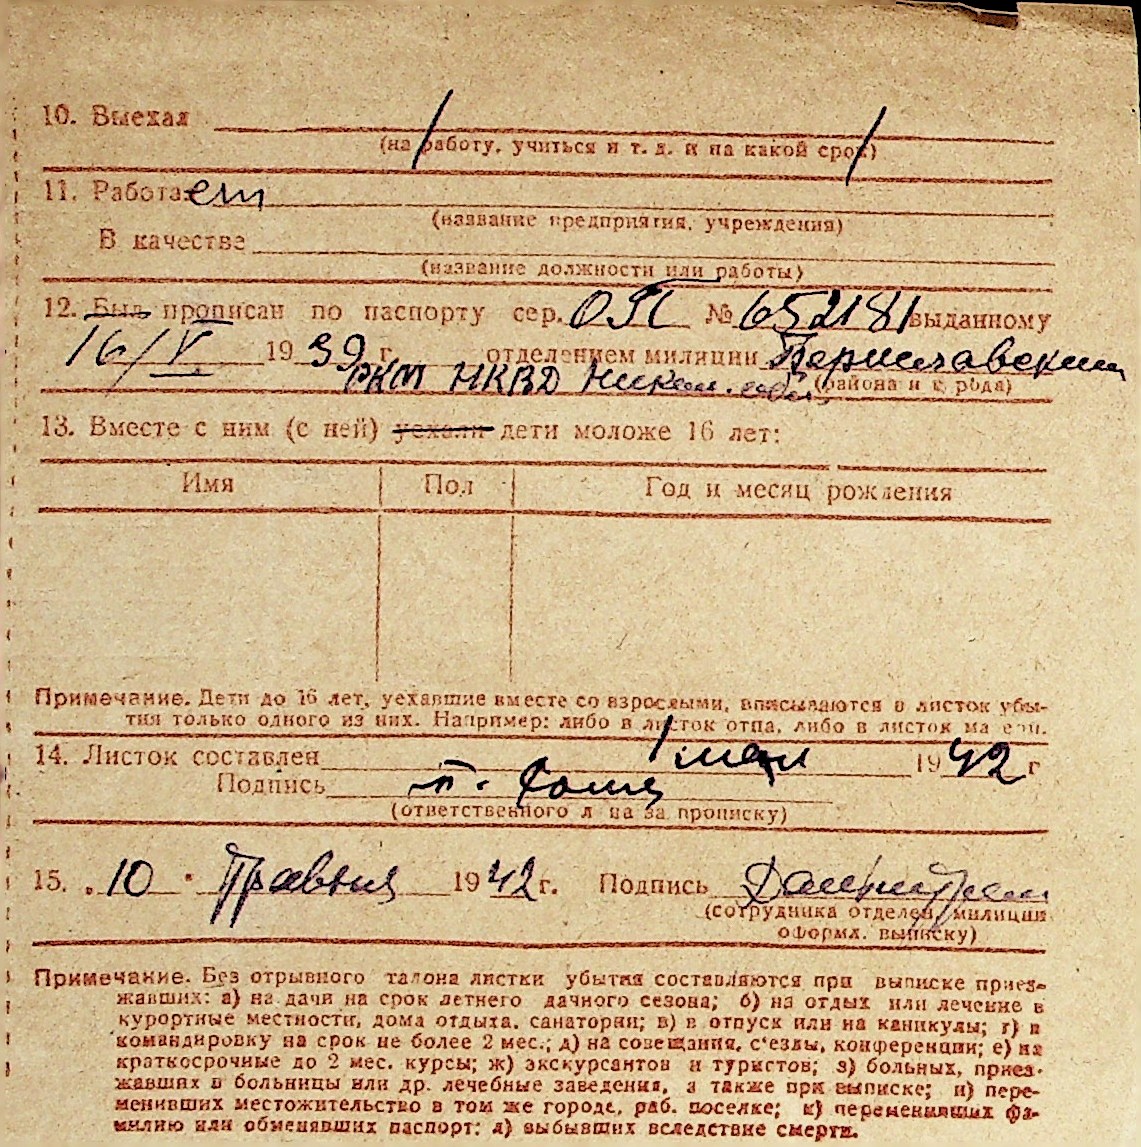 10. Выехал
(на работу, учиться и т. д. и на какой срок)
11. Работает
(название предприятия, учреждения)
В качестве
(название должности или работы)
12. Был прописан по паспорту сер. № 652181 выданному
16/V 1939 г. отделением милиции
РКМ НКВД (района и города)
13. Вместе с ним (с ней) уехали дети моложе 16 лет:
Имя Пол Год и месяц рождения
Примечание. Дети до 16 лет, уехавшие вместе со взрослыми, вписываются в листок убы-
тия только одного из них. Например: либо в листок отца, либо в листок матери.
14. Листок составлен 1 мая 1942 г
Подпись
(ответственного лица за прописку)
15. „10" Травня 1942 г. Подпись
(сотрудника отделен. милиции
оформл. выписку)
Примечание. Без отрывного талона листки убытия составляются при выписке приез-
жавших: а) на дачи на срок летнего дачного сезона; б) на отдых или лечение в
курортные местности, дома отдыха, санатории; в) в отпуск или на каникулы; г) в
командировку на срок не более 2 мес.; д) на совещания, с'езды, конференции; е) на
краткосрочные до 2 мес. курсы; ж) экскурсантов и туристов; з) больных, приез-
жавших в больницы или др. лечебные заведения, а также при выписке; и) пере-
менивших местожительство в том же городе, раб. поселке; к) переменивших фа-
милию или обменявших паспорт; л) выбывших вследствие смерти.